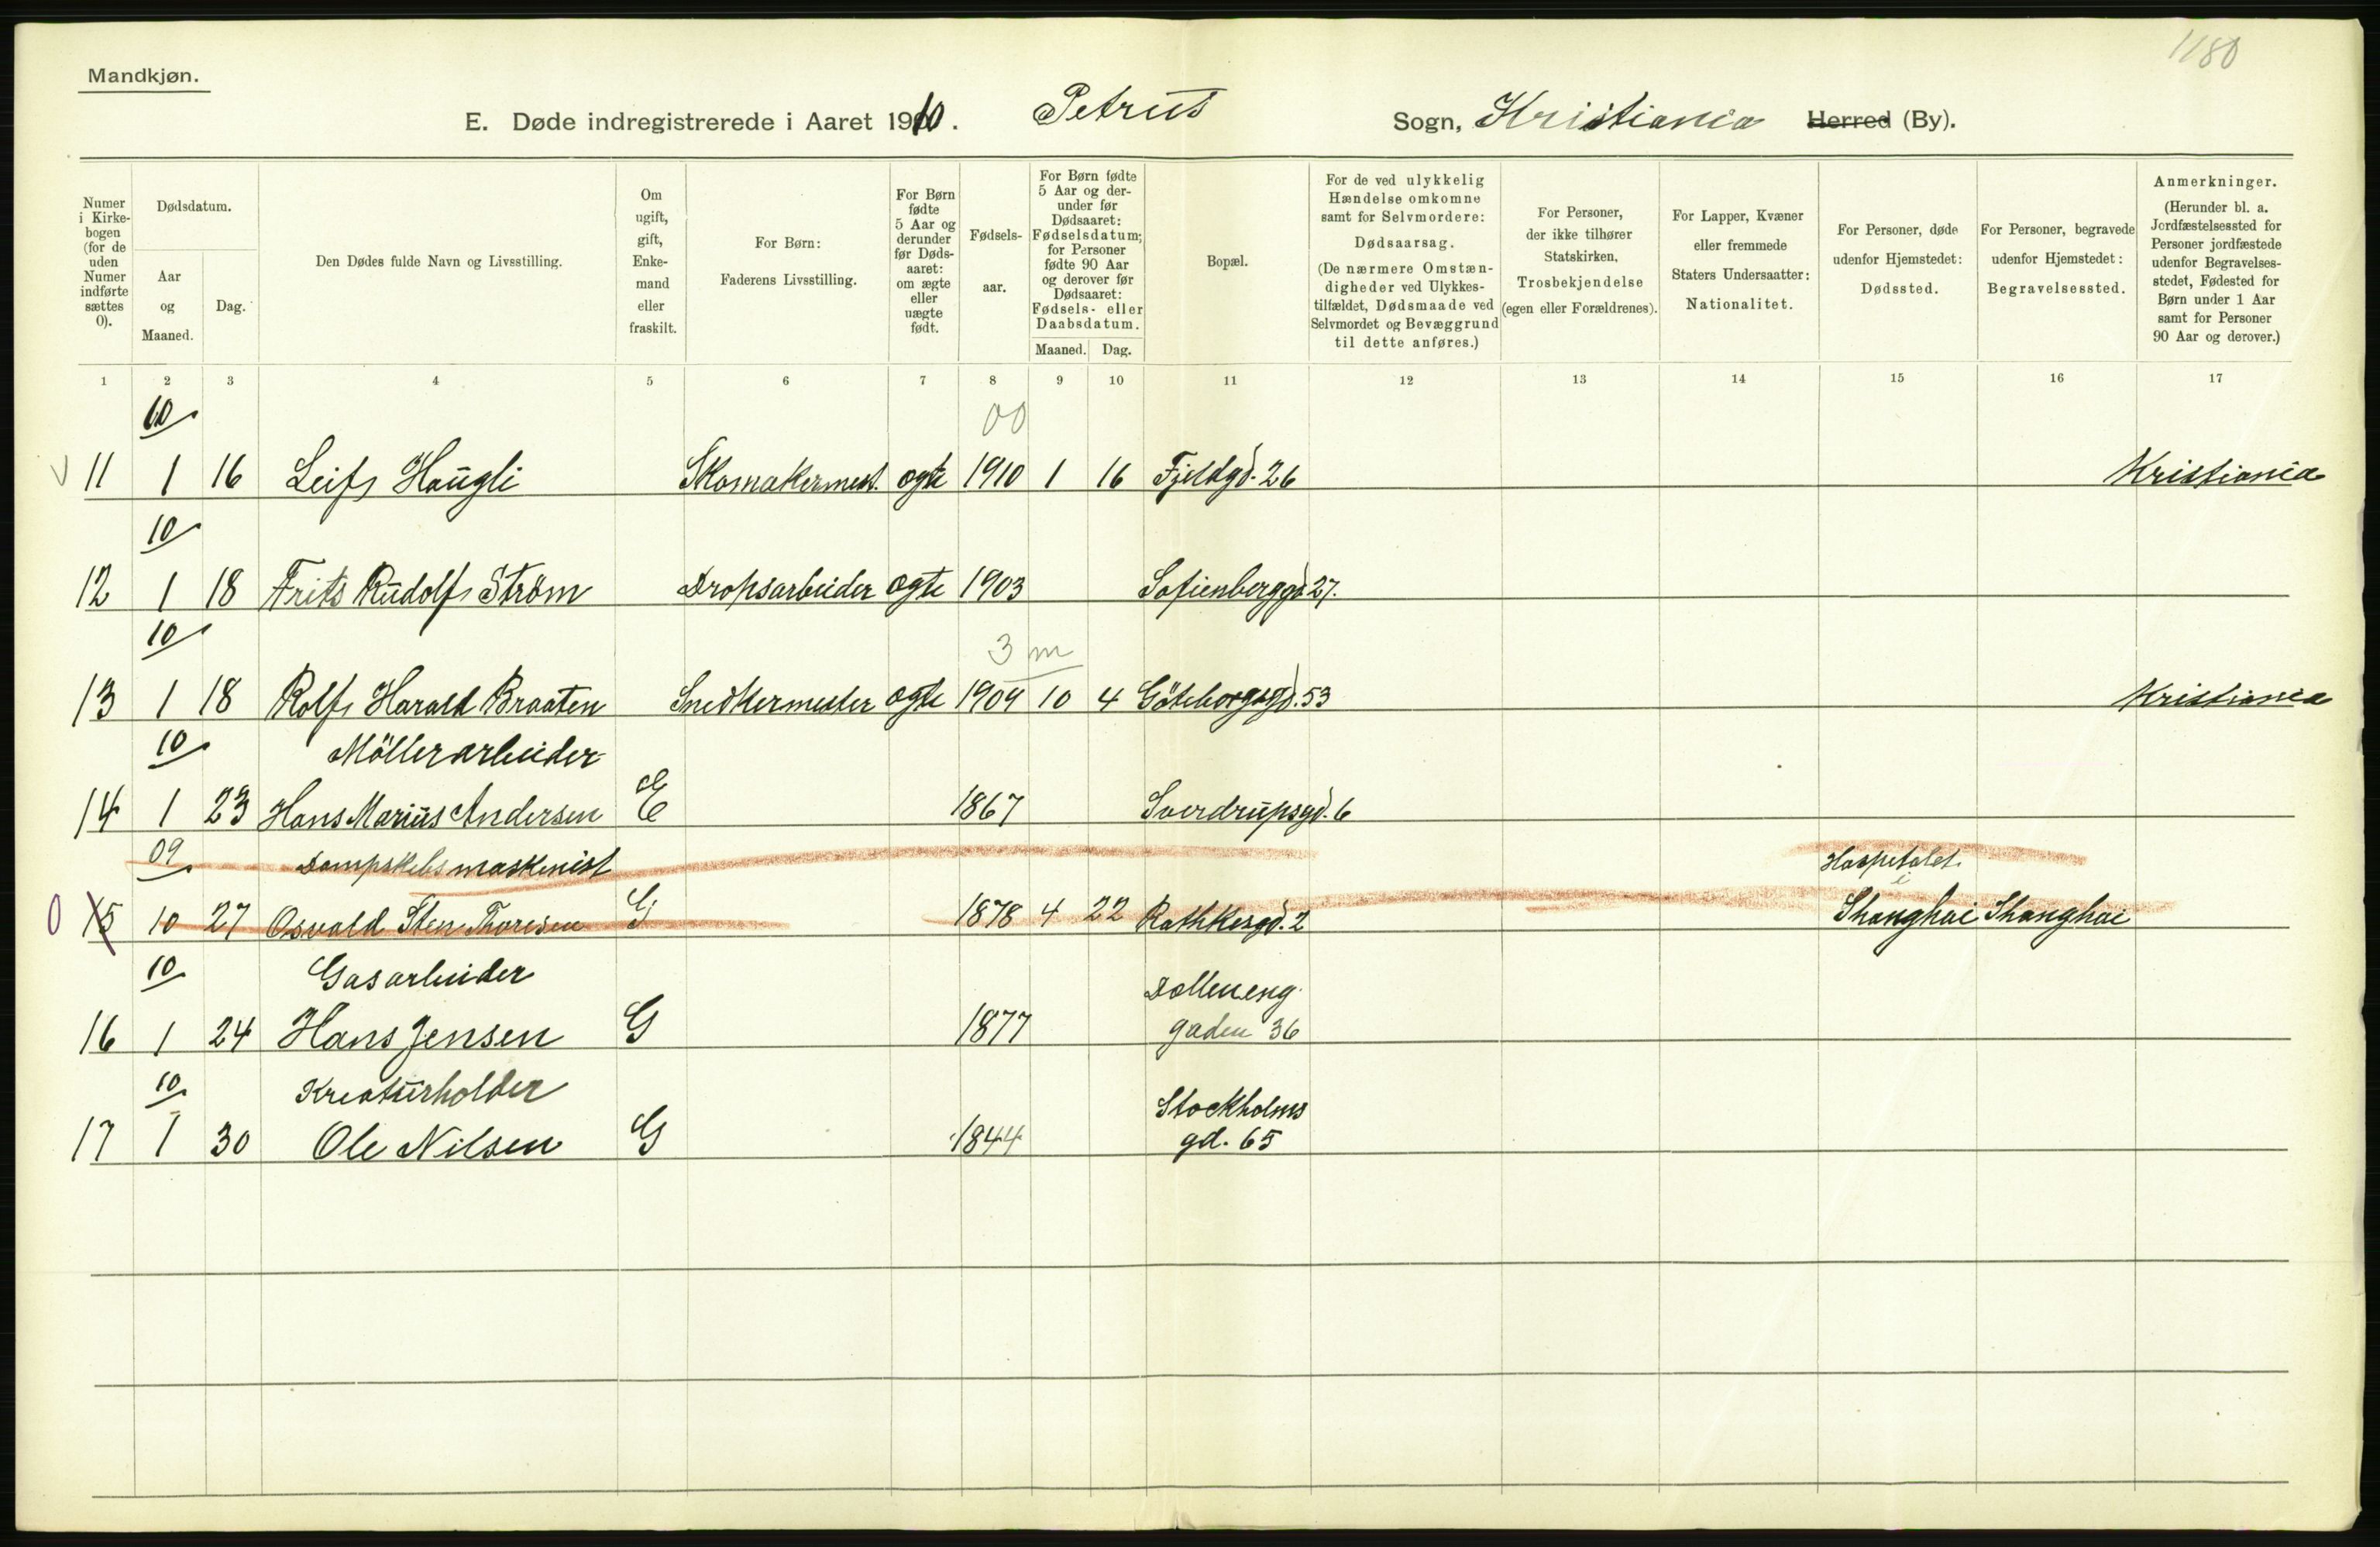 1180
Mandkjøn.
E. Døde indregistrerede i Aaret 1910. Petrus Sogn, Kristiania Herred (By).
Numer i Kirkebogen (for de uden Numer indførte sættes 0).
Dødsdatum.
Aar og Maaned.
Dag.
Den Dødes fulde Navn og Livsstilling.
Om ugift, gift, Enkemand eller fraskilt.
For Børn: Faderens Livsstilling.
For Børn fødte 5 Aar og derunder før Dødsaaret: om ægte eller uægte født.
Fødselsaar.
For Børn fødte 5 Aar og derunder før Dødsaaret: Fødselsdatum; for Personer fødte 90 Aar og derover før Dødsaaret: Fødsels- eller Daabsdatum.
Maaned. Dag.
Bopæl.
For de ved ulykkelig Hændelse omkomne samt for Selvmordere: Dødsaarsag. (De nærmere Omstændigheder ved Ulykkestilfældet, Dødsmaade ved Selvmordet og Bevæggrund til dette anføres.)
For Personer, der ikke tilhører Statskirken, Trosbekjendelse (egen eller Forældrenes).
For Lapper, Kvæner eller fremmede Staters Undersaatter: Nationalitet.
For Personer, døde udenfor Hjemstedet: Dødssted.
For Personer, begravede udenfor Hjemstedet: Begravelsessted.
Anmerkninger. (Herunder bl. a. Jordfæstelsessted for Personer jordfæstede udenfor Begravelsesstedet, Fødested for Børn under 1 Aar samt for Personer 90 Aar og derover.)
1 2 3 4 5 6 7 8 9 10 11 12 13 14 15 16 17
10 00
11 1 16 Leif Haugli Skomakermest. ægte 1910 1 16 Fjeldgd. 26 Kristiania
10
12 1 18 Frits Rudolf Ström Dropsarbeider ægte 1903 Sofienberggd 27.
10 3 m
13 1 18 Rolf Harald Braaten Snedkermester ægte 1909 10 4 Göteborgsgd. 53 Kristiania
10 Möllerarbeider
14 1 23 Hans Marius Andersen E 1867 Sverdrupsgd. 6
09 Dampskibsmaskinist Hospitalet i
0 15 10 27 Osvald Sten Thoresen G 1878 4 22 Rathkesgd. 2 Shanghai Shanghai
10 Gasarbeider Dælleneng
16 1 24 Hans Jensen G 1877 gaden 36
10 Kreaturholder Stockholms
17 1 30 Ole Nilsen G 1844 gd. 65